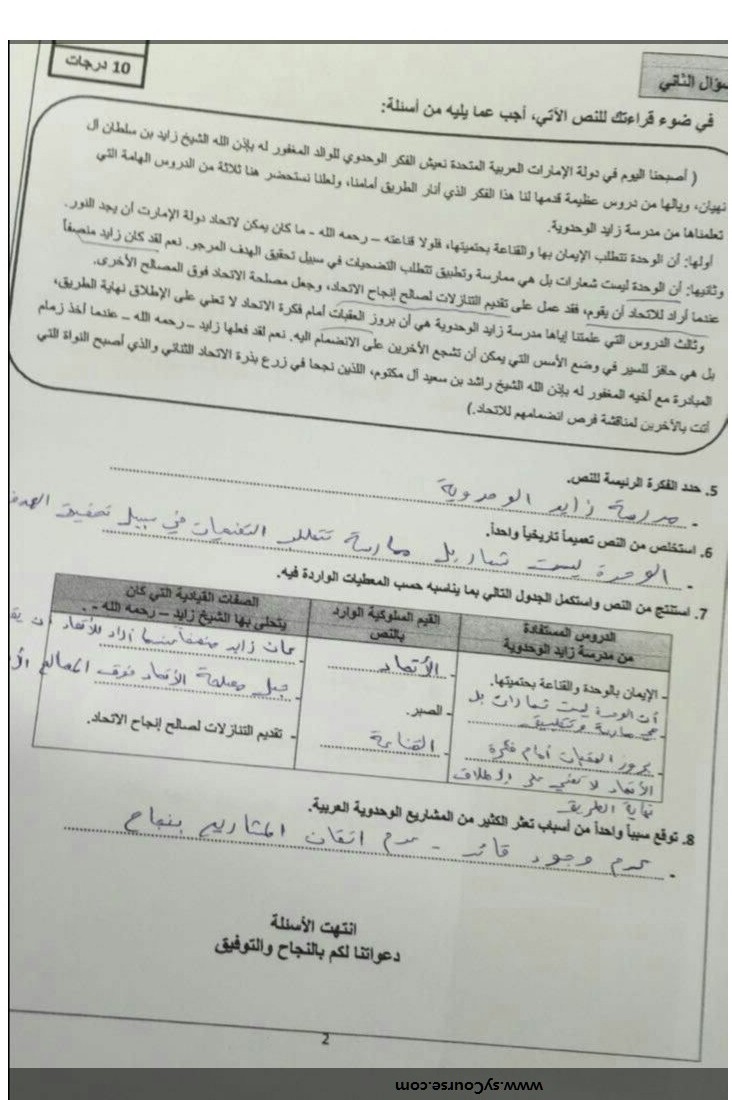 10 درجات
سؤال الثاني
في ضوء قراءتك للنص الآتي، أجب عما يليه من أسئلة:
( أصبحنا اليوم في دولة الإمارات العربية المتحدة نعيش الفكر الوحدوي للوالد المغفور له بإذن الله الشيخ زايد بن سلطان آل
نهيان، ويالها من دروس عظيمة قدمها لنا هذا الفكر الذي أنار الطريق أمامنا، ولعلنا نستحضر هنا ثلاثة من الدروس الهامة التي
تعلمناها من مدرسة زايد الوحدوية.
أولها: أن الوحدة تتطلب الإيمان بها والقناعة بحتميتها، فلولا قناعته – رحمه الله - ما كان يمكن لاتحاد دولة الإمارت أن يجد النور.
وثانيها: أن الوحدة ليست شعارات بل هي ممارسة وتطبيق تتطلب التضحيات في سبيل تحقيق الهدف المرجو. نعم لقد كان زايد منصفاً
عندما أراد للاتحاد أن يقوم، فقد عمل على تقديم التنازلات لصالح إنجاح الاتحاد، وجعل مصلحة الاتحاد فوق المصالح الأخرى.
وثالث الدروس التي علمتنا إياها مدرسة زايد الوحدوية هي أن بروز العقبات أمام فكرة الاتحاد لا تعني على الإطلاق نهاية الطريق،
بل هي حافز للسير في وضع الأسس التي يمكن أن تشجع الأخرين على الانضمام اليه. نعم لقد فعلها زايد – رحمه الله – عندما أخذ زمام
المبادرة مع أخيه المغفور له بإذن الله الشيخ راشد بن سعيد آل مكتوم، اللذين نجحا في زرع بذرة الاتحاد الثنائي والذي أصبح النواة التي
أتت بالآخرين لمناقشة فرص انضمامهم للاتحاد.)
5. حدد الفكرة الرئيسة للنص.
- مدرسة زايد الوحدوية
6. استخلص من النص تعميماً تاريخياً واحداً.
- الوحدة ليست شعار بل ممارسة تتطلب التضحيات في سبيل تحقيق الهدف
7. استنتج من النص واستكمل الجدول التالي بما يناسبه حسب المعطيات الواردة فيه.
الدروس المستفادة من مدرسة زايد الوحدوية
القيم السلوكية الوارد بالنص
الصفات القيادية التي كان يتحلى بها الشيخ زايد – رحمه الله - .
- الإيمان بالوحدة والقناعة بحتميتها.
- أن الوحدة ليست شعارات بل
هي ممارسة وتطبيق
- بروز العقبات أمام فكرة
الأتحاد لا تعني على الإطلاق
نهاية الطريق
- الأتحاد
- الصبر.
- القناعة
- كان زايد منصفاً عندما أراد للأتحاد أن
- جعل مصلحة الأتحاد فوق المصالح
- تقديم التنازلات لصالح إنجاح الاتحاد.
8. توقع سبباً واحداً من أسباب تعثر الكثير من المشاريع الوحدوية العربية.
- عدم وجود قائد - عدم اتقان المشاريع بنجاح
انتهت الأسئلة
دعواتنا لكم بالنجاح والتوفيق
2
www.syCourse.com